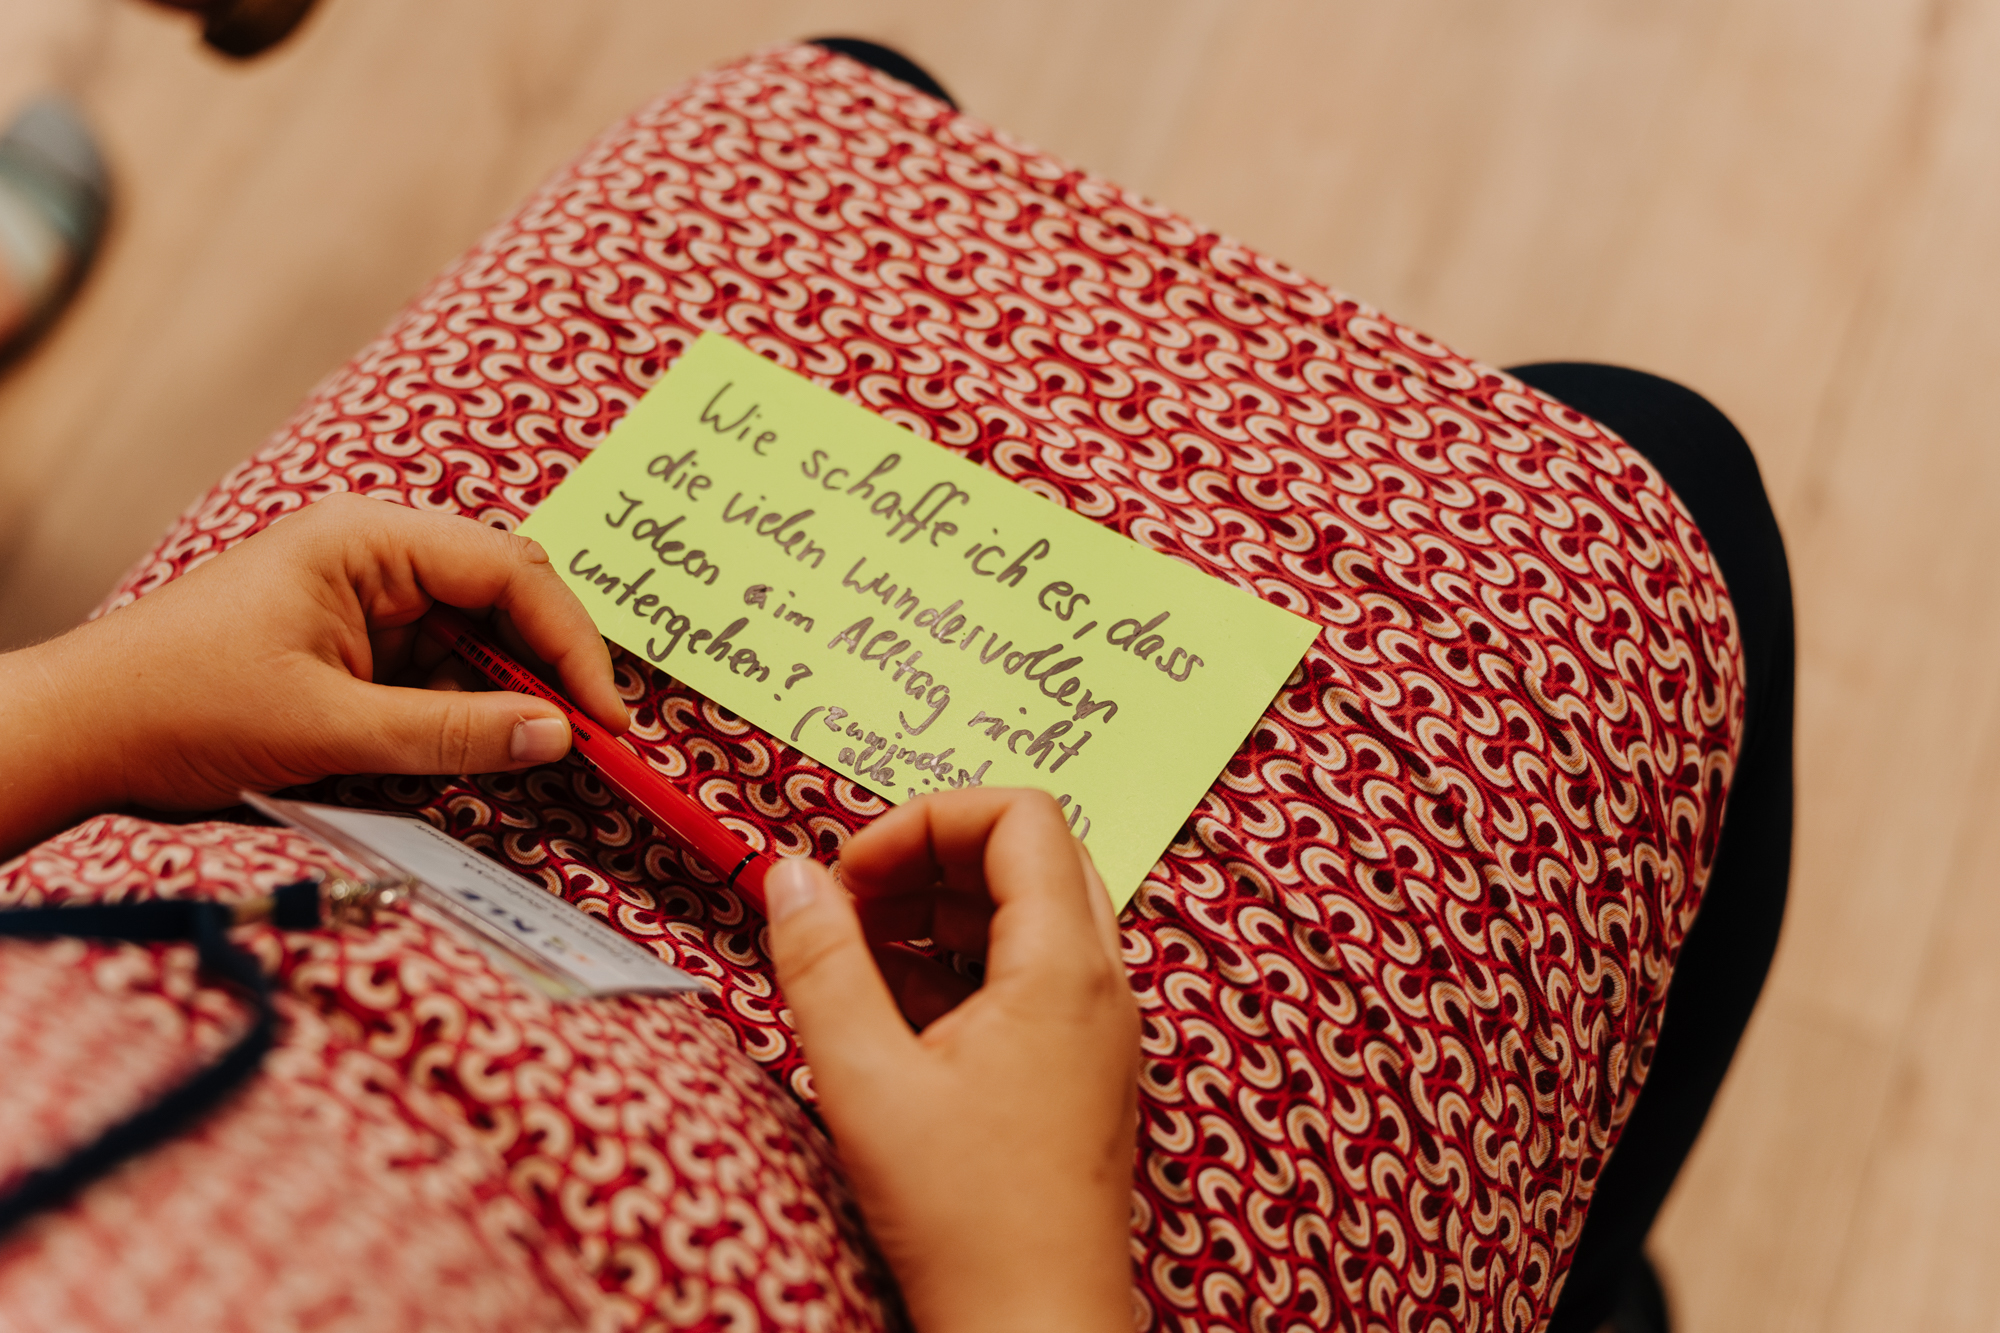 Wie schaffe ich es, dass
die vielen wundervollen
Ideen im Alltag nicht
untergehen?
(Zumindest
alle